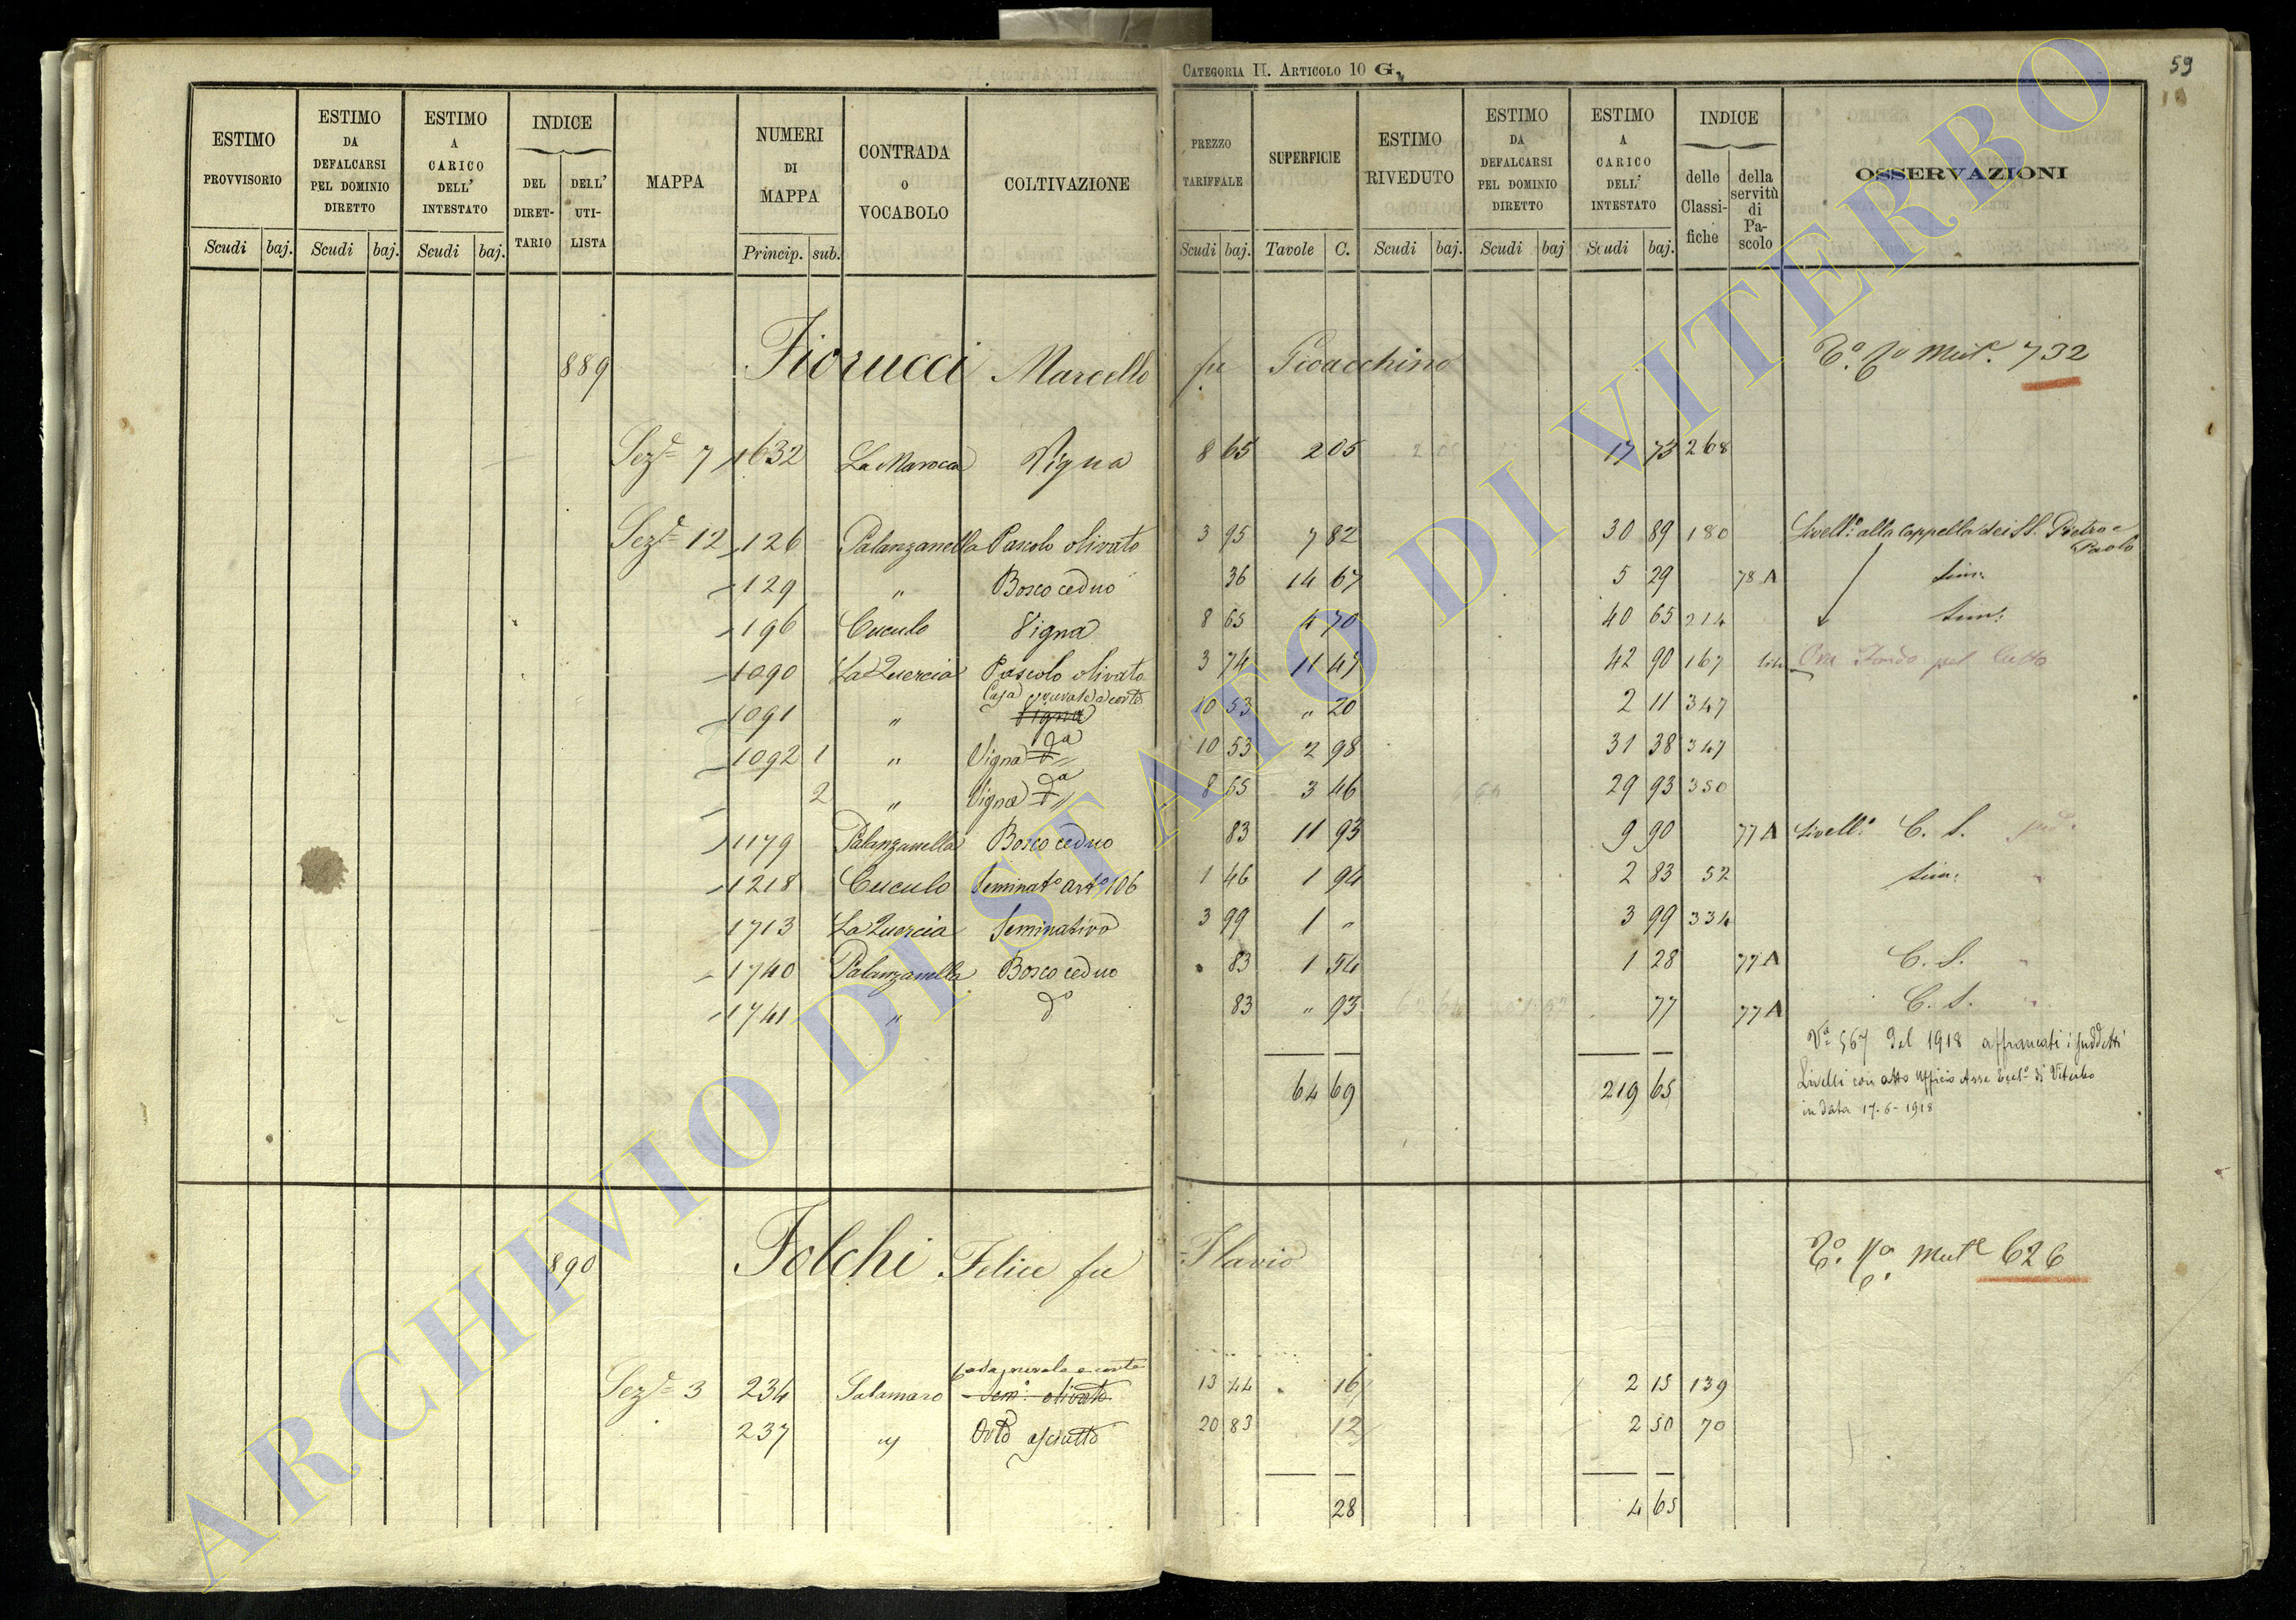 CATEGORIA II. ARTICOLO 10 G.
59
ESTIMO PROVVISORIO
Scudi baj.
ESTIMO DA DEFALCARSI PEL DOMINIO DIRETTO
Scudi baj.
ESTIMO A CARICO DELL' INTESTATO
Scudi baj.
INDICE
DEL DIRET-TARIO
DELL' UTI-LISTA
MAPPA
NUMERI DI MAPPA
Princip. sub.
CONTRADA O VOCABOLO
COLTIVAZIONE
PREZZO TARIFFALE
Scudi baj.
SUPERFICIE
Tavole C.
ESTIMO RIVEDUTO
Scudi baj.
ESTIMO DA DEFALCARSI PEL DOMINIO DIRETTO
Scudi baj
ESTIMO A CARICO DELL' INTESTATO
Scudi baj.
INDICE
delle Classi-fiche
della servitù di Pa-scolo
OSSERVAZIONI
889 Fiorucci Marcello fu Gioacchino 732
Sez.e 7 1632 La Maroca Vigna 8 65 2 05 17 73 268
Sez.e 12 126 Palanzanella Pascolo olivato 3 95 7 82 30 89 180 Livell.o alla Cappella dei SS. Pietro e Paolo
129 " Bosco ceduo 36 14 67 5 29 78 A Sim:
196 Cuculo Vigna 8 65 4 70 40 65 214 Sim:
1090 La Quercia Pascolo olivato 3 74 11 47 42 90 167
Casa rurale e corte
1091 " Vigna 10 53 " 20 2 11 347
1092 1 " Vigna da 10 53 2 98 31 38 347
2 " Vigna da 8 65 3 46 29 93 350
1179 Palanzanella Bosco ceduo 83 11 93 9 90 77 A Livell.o C. S.
1218 Cuculo Seminato art.o 106 1 46 1 94 2 83 52 Sim:
1713 La Quercia Seminativo 3 99 1 " 3 99 334
1740 Palanzanella Bosco ceduo 83 1 54 1 28 77 A C. S.
1741 " do 83 " 93 77 77 A C. S.
Va 567 del 1918 affrancati i suddetti
Livelli con atto Ufficio Asse Eccl.o di Viterbo
in data 17-6-1918
64 69 219 65
890 Folchi Felice fu Flavio 626
Casa rurale e corte
Sez.e 3 234 Salamaro Sem.o olivato 13 44 16 2 15 139
237 " Orto asciutto 20 83 12 2 50 70
28 4 65
ARCHIVIO DI STATO DI VITERBO